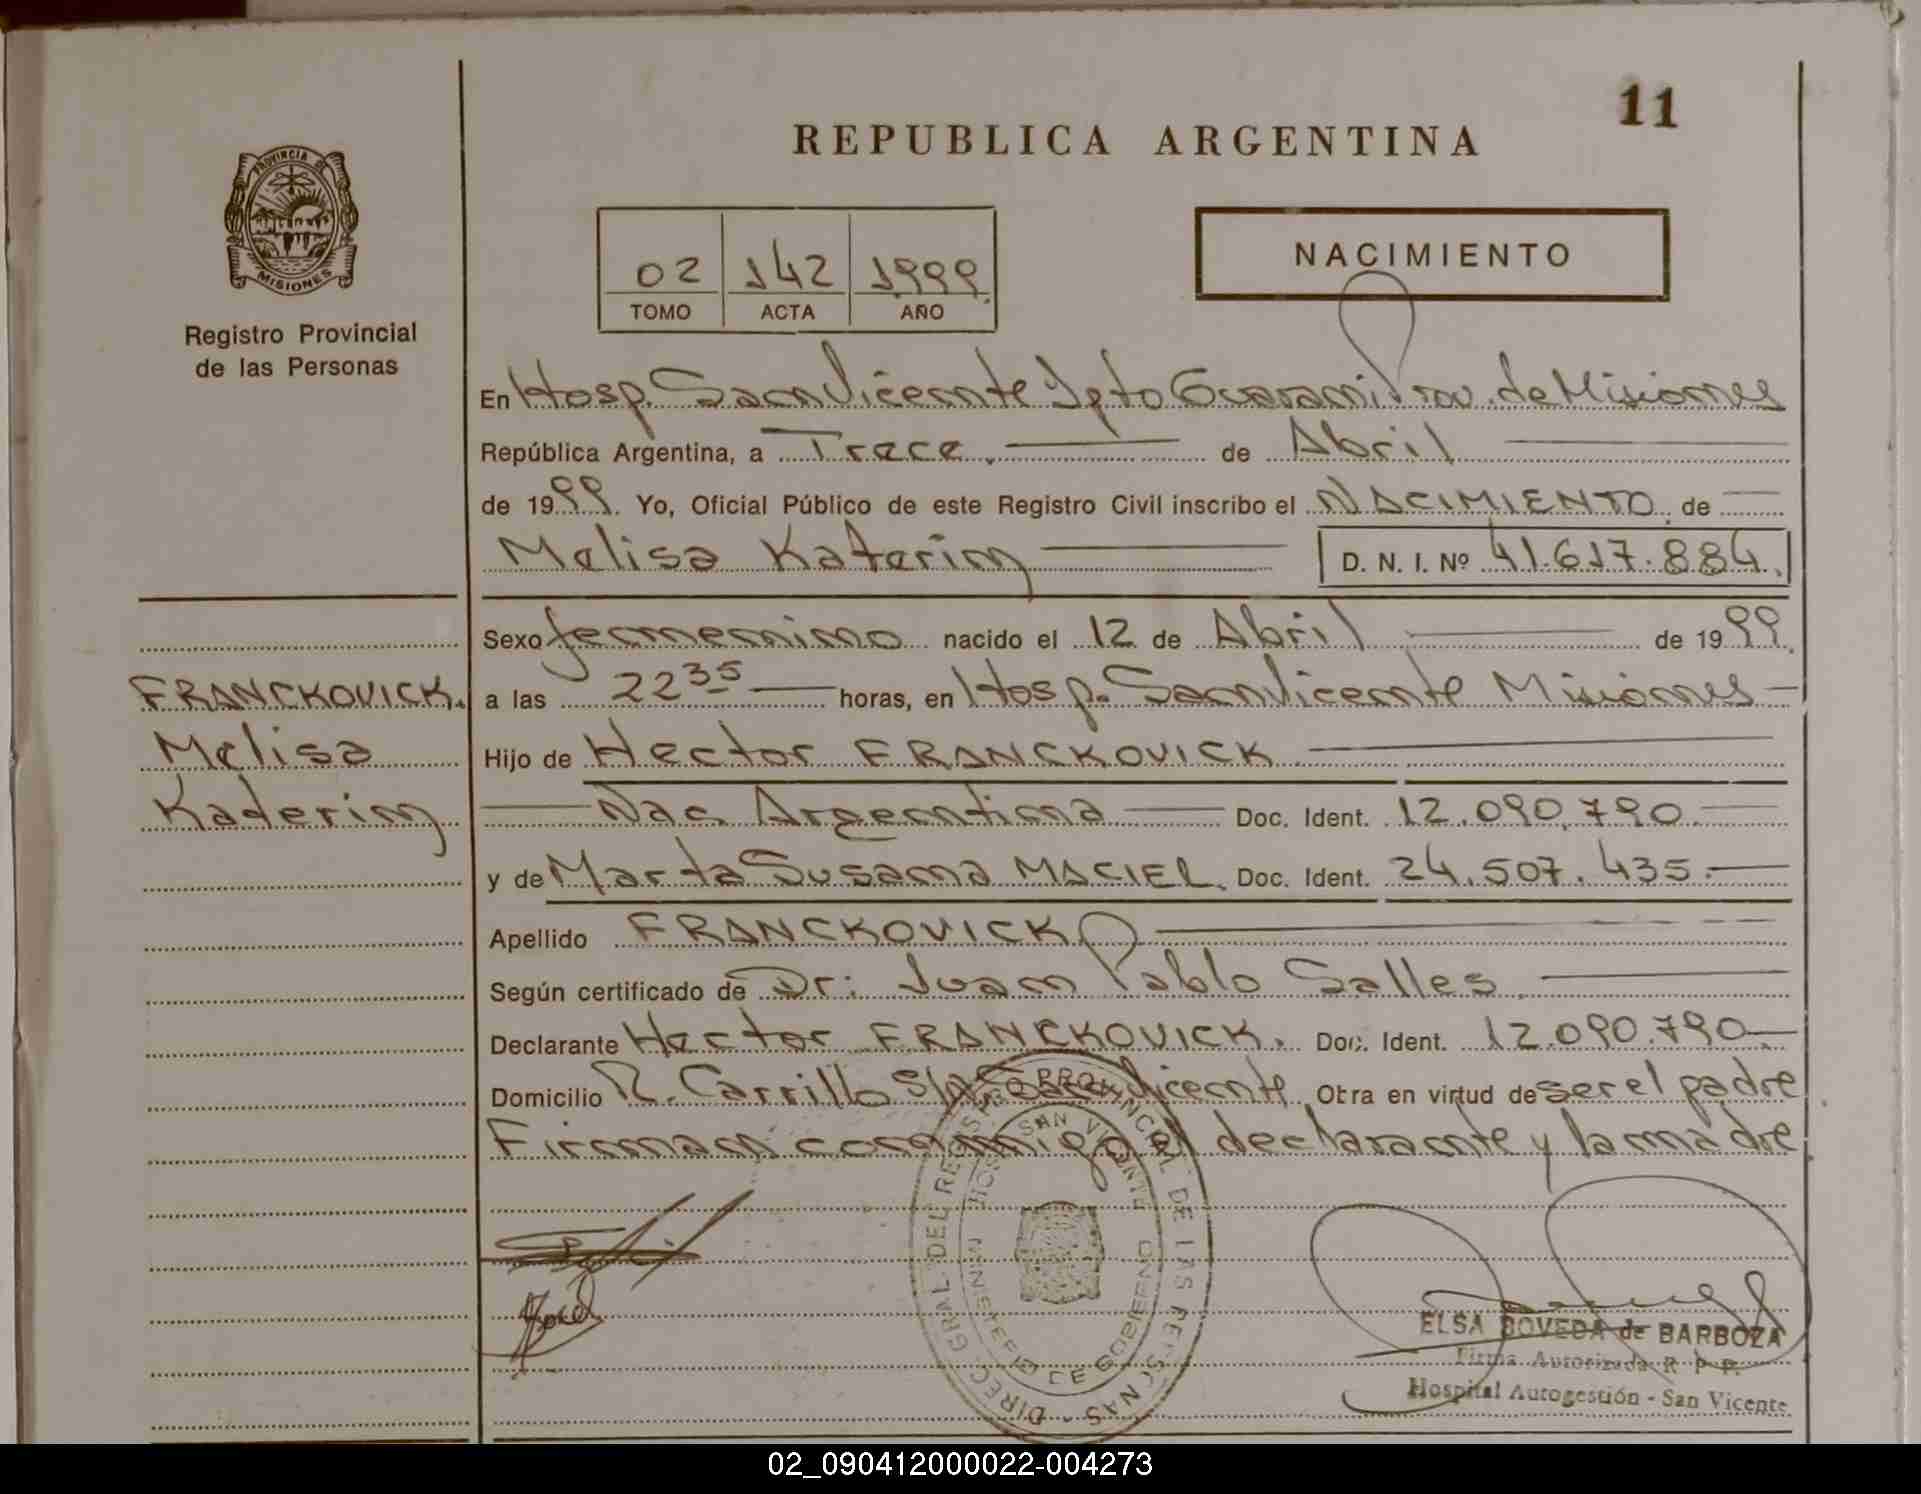 11
REPUBLICA ARGENTINA
PROVINCIA DE
MISIONES
Registro Provincial
de las Personas
02 142 1999
TOMO ACTA AÑO
NACIMIENTO
En Hosp. San Vicente Dpto Guarani Prov. de Misiones
República Argentina, a Trece de Abril
de 1999. Yo, Oficial Público de este Registro Civil inscribo el NACIMIENTO de
Melisa Katerin D. N. I. Nº 41.617.884.
Sexo femenino nacido el 12 de Abril de 1999.
a las 22 35 horas, en Hosp. San Vicente Misiones
Hijo de Hector FRANCKOVICK
Nac. Argentina Doc. Ident. 12.090.790.
y de Marta Susana MACIEL. Doc. Ident. 24.507.435.
Apellido FRANCKOVICK
Según certificado de Dr: Juan Pablo Salles
Declarante Hector FRANCKOVICK. Doc. Ident. 12.090.790
Domicilio R. Carrillo s/n San Vicente Otra en virtud de ser el padre
Firman conmigo el declarante y la madre
FRANCKOVICK.
Melisa
Katerin
DIREC. GRAL. DEL REGISTRO PROVINCIAL DE LAS PERSONAS
HOSP. SAN VICENTE
MINISTERIO DE GOBIERNO
ELSA BOVEDA de BARBOZA
Firma Autorizada R. P. P.
Hospital Autogestión - San Vicente
02_090412000022-004273